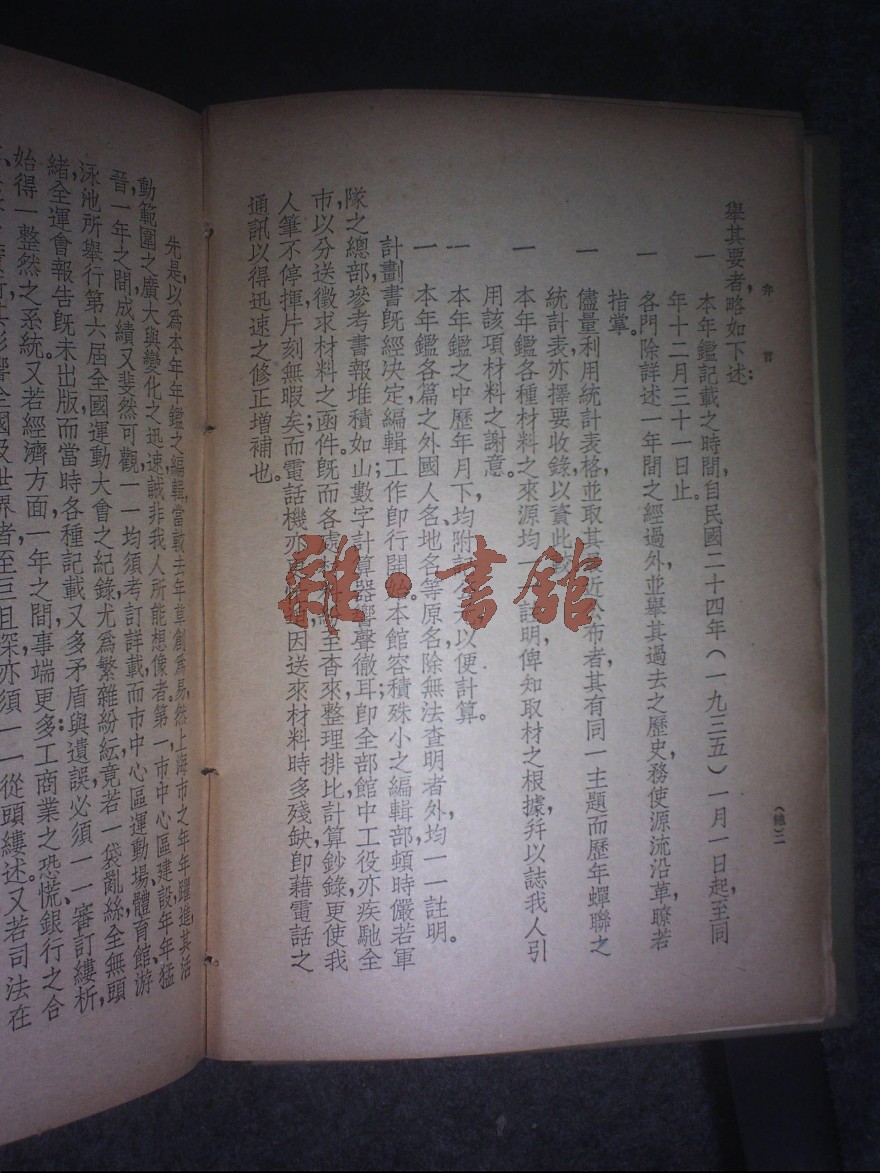 弁言
(總)二
舉其要者,略如下述:
一 本年鑑記載之時間,自民國二十四年(一九三五)一月一日起,至同
年十二月三十一日止。
一 各門除詳述一年間之經過外,並舉其過去之歷史,務使源流沿革,瞭若
指掌。
一 儘量利用統計表格,並取其 近公布者,其有同一主題而歷年蟬聯之
統計表,亦擇要收錄,以資比
一 本年鑑各種材料之來源,均一一註明,俾知取材之根據,幷以誌我人引
用該項材料之謝意。
一 本年鑑之中歷年月下,均附 以便計算。
一 本年鑑各篇之外國人名、地名等原名,除無法查明者外,均一一註明。
計劃書旣經决定,編輯工作卽行開始。本館容積殊小之編輯部,頓時儼若軍
隊之總部,參考書報,堆積如山;數字計算器響聲徹耳;卽全部館中工役,亦疾馳全
市,以分送徵求材料之函件。旣而各處 至沓來,整理排比,計算鈔錄,更使我
人筆不停揮,片刻無暇矣;而電話機亦 因送來材料,時多殘缺,卽藉電話之
通訊,以得迅速之修正增補也。
先是,以爲本年年鑑之編輯,當較去年草創爲易,然上海市之年年躍進,其活
動範圍之廣大,與變化之迅速,誠非我人所能想像者。第一,市中心區建設,年年猛
晉,一年之間,成績又斐然可觀,一一均須考訂詳載,而市中心區運動場、體育館、游
泳池所舉行第六屆全國運動大會之紀錄,尤爲繁雜紛紜,竟若一袋亂絲,全無頭
緒,全運會報告旣未出版,而當時各種記載,又多矛盾與遺誤,必須一一審訂縷析,
始得一整然之系統。又若經濟方面,一年之間,事端更多:工商業之恐慌,銀行之合
影響全國及世界者至巨且深,亦須一一從頭縷述。又若司法在
雜·書館